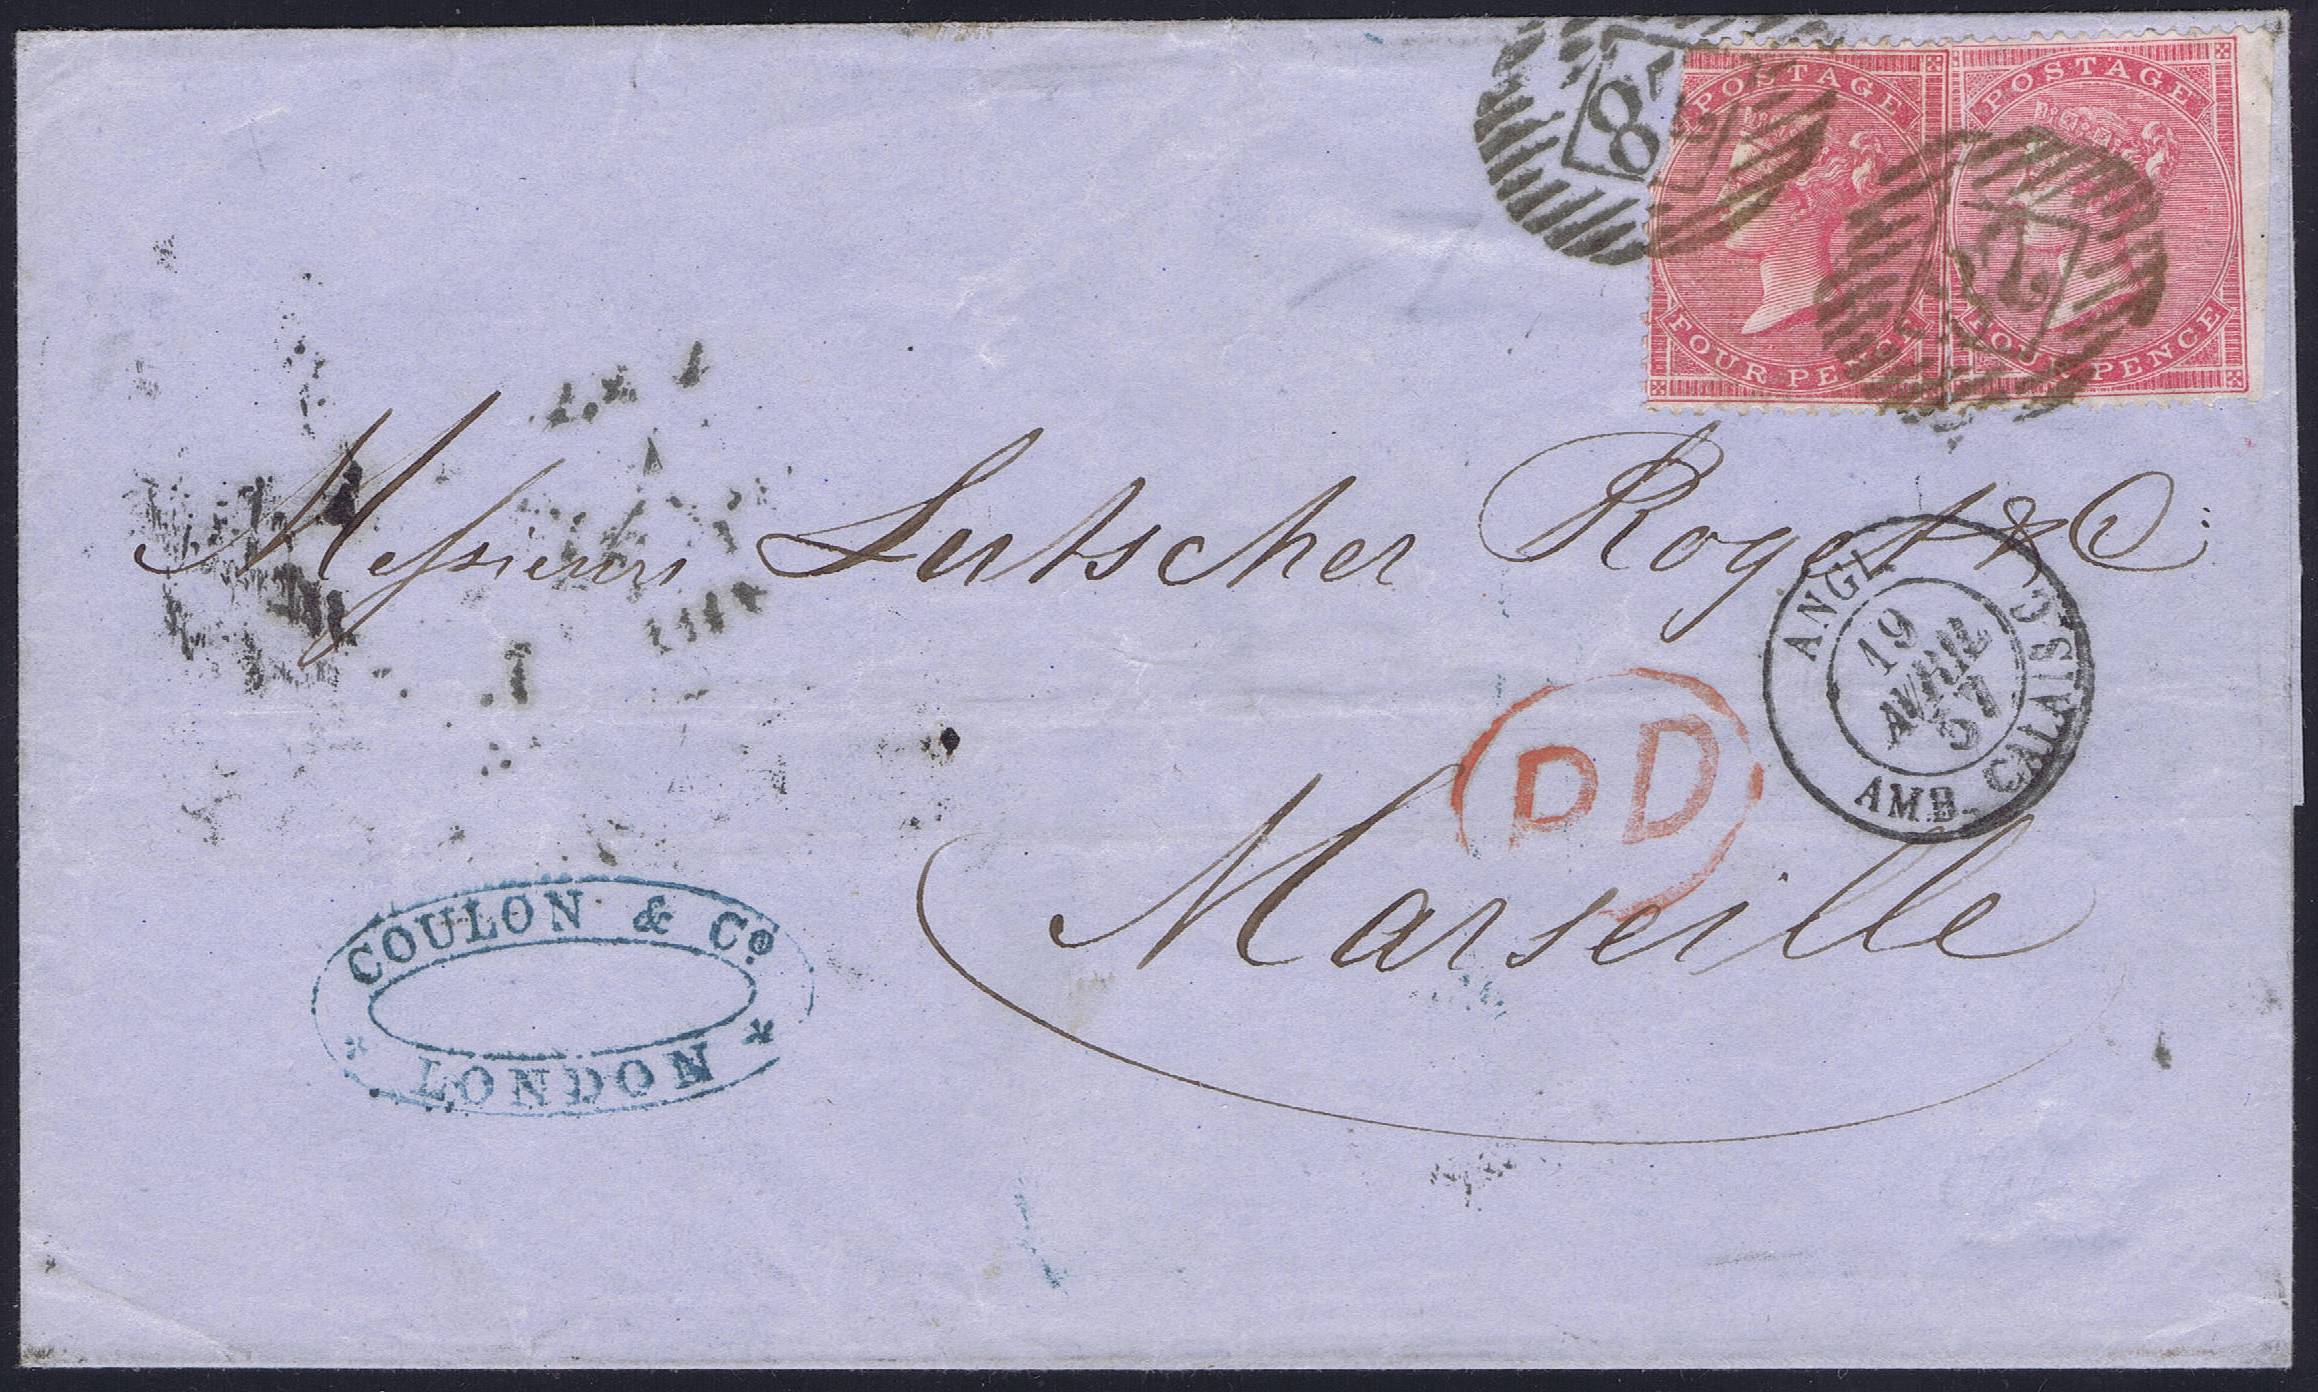 POSTAGE
FOUR PENCE
POSTAGE
FOUR PENCE
8
Messieurs Lutscher Roget & Co
ANGL.
19
AVRIL
57
AMB. CALAIS C
PD
Marseille
COULON & Co
* LONDON *